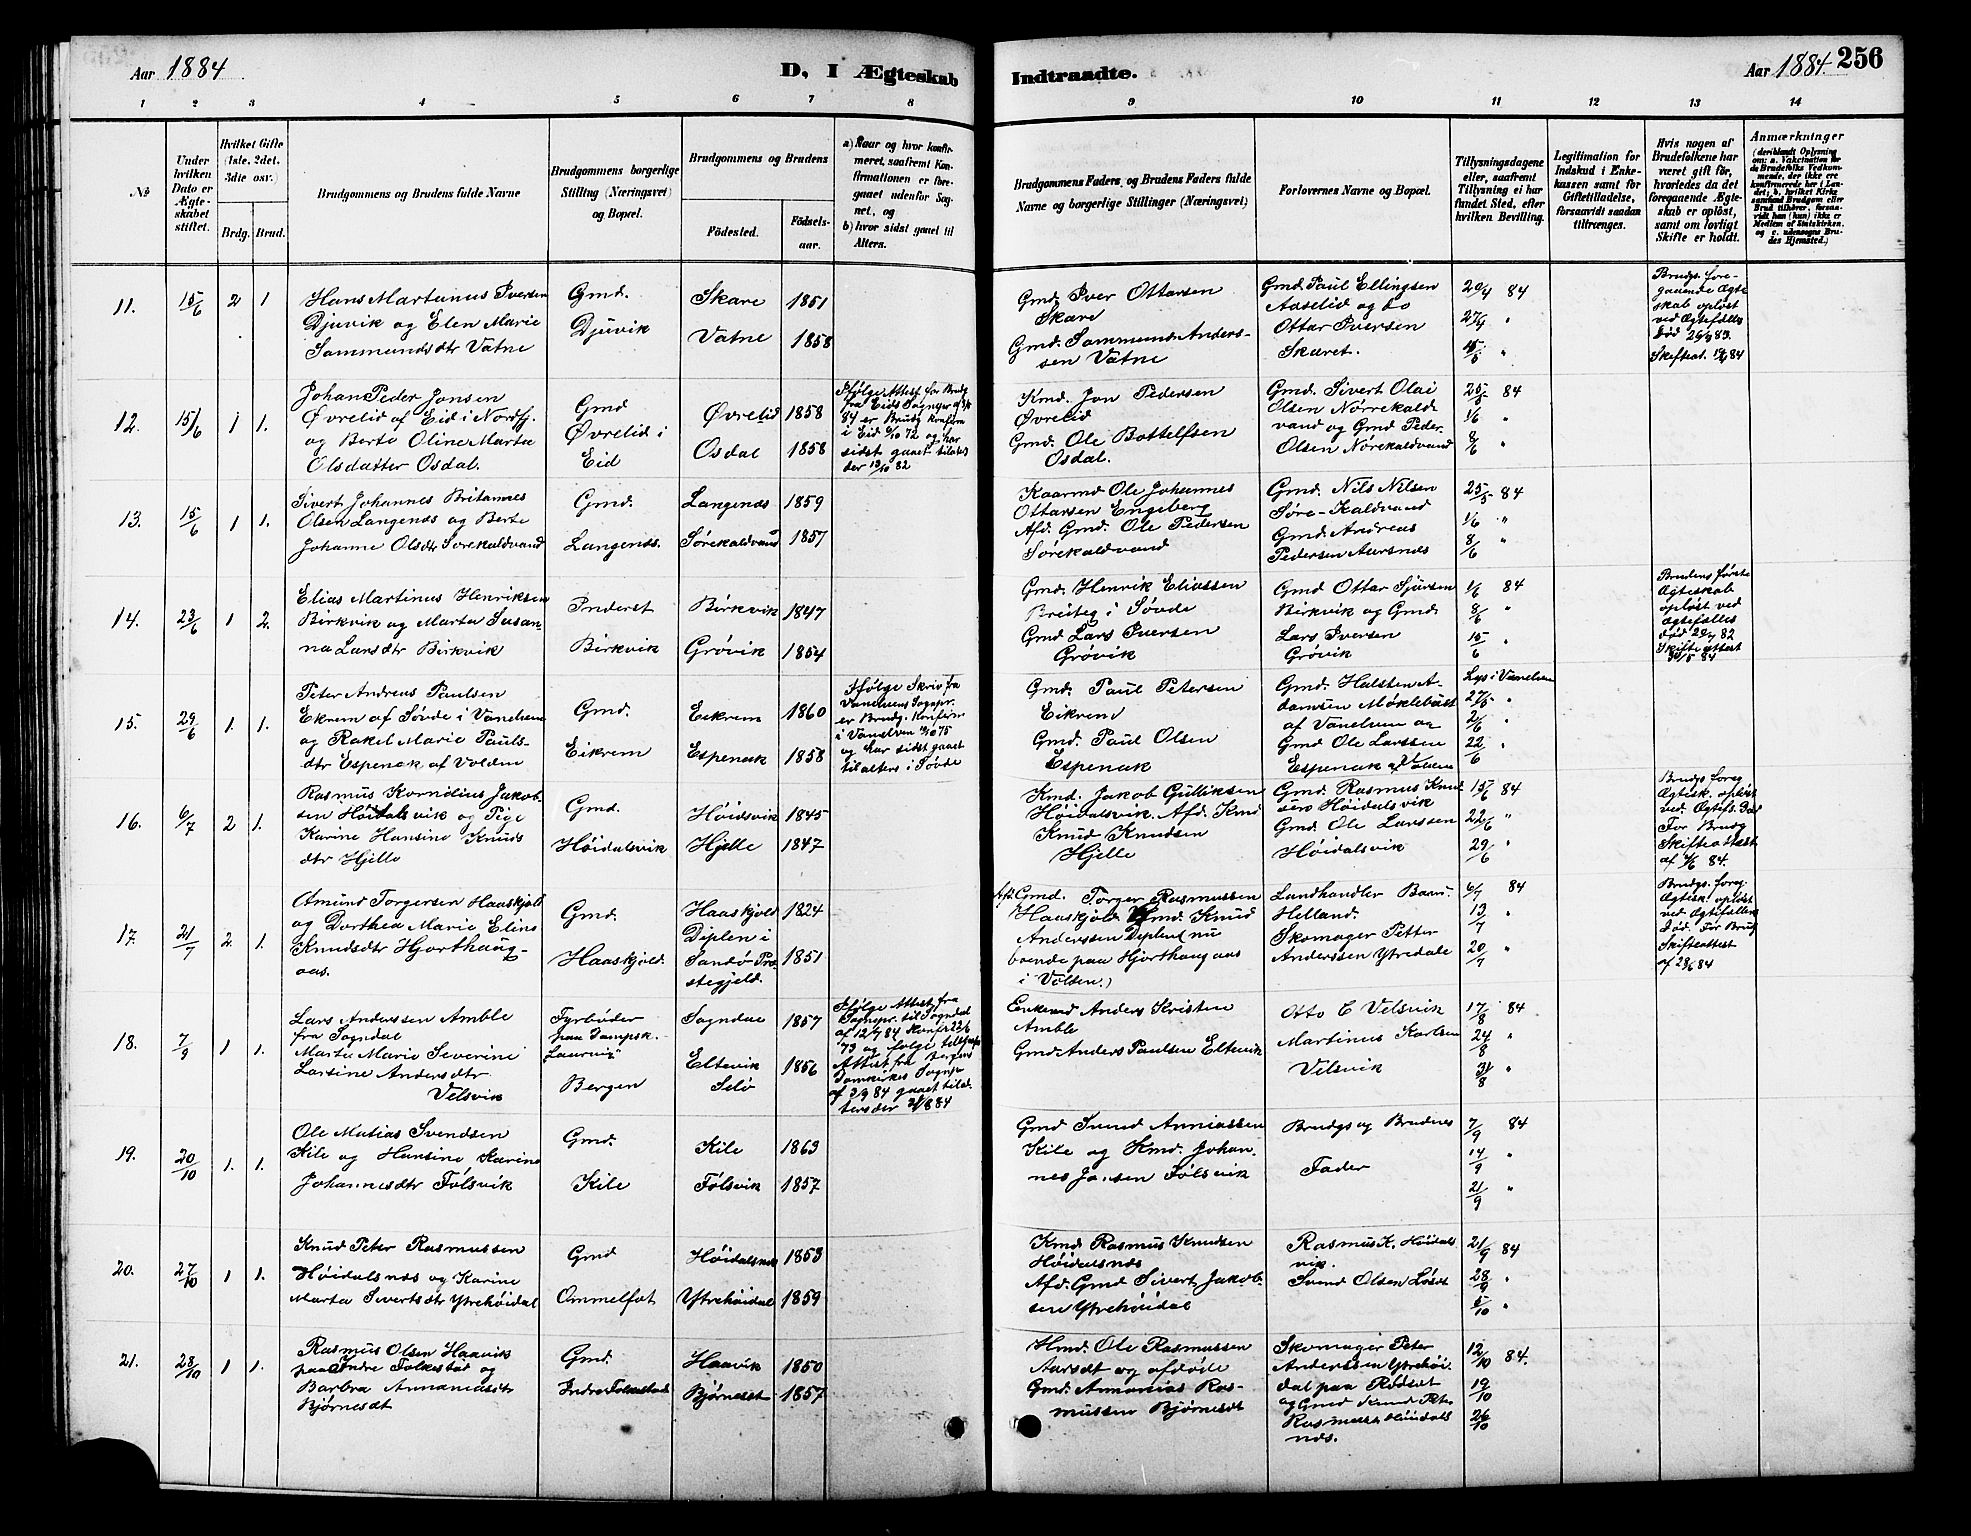 Aar 1884
D, I Ægteskab
1 2 3 4 5 6 7 8
No
Under hvilken Dato er Ægteskabet stiftet.
Hvilket Gifte (1ste, 2det, 3die osv.)
Brdg. Brud.
Brudgommens og Brudens fulde Navne
Brudgommens borgerlige Stilling (Næringsvei) og Bopæl.
Brudgommens og Brudens
Fødested.
Fødselsaar.
a) Naar og hvor konfirmeret, saafremt Konfirmationen er foregaaet udenfor Sognet, og
b) hvor sidst gaaet til Alters.
11. 15/6 2 1.
Hans Martinus Iversen
Djuvik og Elen Marie
Sammundsdtr Vatne
Gmd.
Djuvik
Skare 1851
Vatne 1858
12. 15/6 1 1.
Johan Peder Jonsen
Øvrelid af Eid i Nordfj.
og Berte Oline Marta
Olsdatter Osdal.
Gmd
Øvrelid i
Eid
Øvrelid 1858
Osdal 1858
Ifølge Attest for Brudg
fra Eids Sognepr af
84 er Brudg konfirm
i Eid 6/10 72 og har
sidst gaaet tilalters
der 13/10 82
13. 15/6 1 1.
Sivert Johannes Britannes
Olsen Langenæs og Berte
Johanne Olsdtr Sørekaldvand
Gmd.
Langenæs.
Langenæs 1859
Sørekaldvand 1857
14. 23/6 1 2.
Elias Martinus Henriksen
Birkvik og Marta Susan-
na Larsdtr Birkvik
Inderst
Birkvik
Birkvik 1847
Grøvik 1854
15. 29/6 1. 1.
Peter Andreas Paulsen
Ekrem af Søvde i Vanelven
og Rakel Marie Pauls-
dtr Espenak af Volden
Gmd.
Eikrem
Eikrem 1860
Espenak 1858
Ifølge Skriv fra
Vanelvens Sognepr.
er Brudg. Konfirm
i Vanelven 75
og har sidst gaaet
til alters i Søvde
16. 6/7 2 1.
Rasmus Kornelius Jakob-
sen Høidalsvik og Pige
Karine Hansine Knuds
dtr Hjelle
Gmd.
Høidalsvik
Høidsvik 1845
Hjelle 1847
17. 21/7 2. 1.
Amund Torgersen Haaskjold
og Dorthea Marie Eline
Knudsdtr Hjorthaug-
aas.
Gmd.
Haaskjold.
Haaskjold 1824
Diplen i
Sandø Præ- 1851
stegjeld.
18. 7/9 1 1.
Lars Anderssen Amble
fra Sogndal
Marta Marie Severine
Larsine Andersdtr
Velsvik
Fyrbøder
paa Dampsk.
"Laurvig"
Bergen
Sogndal 1857
Eltevik 1856
Selø
Ifølge Attest fra
Sognepr. til Sogndal
af 12/7 84 konfir 22/6
73 og følge
Attest fra Bergens
Domkirkes Sognepr
af 2/9 84 gaaet tilal-
ters der 31/8 84
19. 20/10 1. 1.
Ole Matias Svendsen
Kile og Hansine Karine
Johannesdtr Følsvik
Gmd.
Kile
Kile 1863
Følsvik 1857
20. 27/10 1 1.
Knud Peter Rasmussen
Høidalsnæs og Karine
Marta Sivertsdtr Ytrehøidal
Gmd
Ommelfot
Høidalsnæs 1853
Ytrehøidal 1859
21. 28/10 1 1.
Rasmus Olsen Haavik
paa Indre Folkestad og
Barbra Annaniasdtr
Bjørnesdt
Gmd.
Indre Folkestad
Haavik 1850
Bjørneset 1857
Indtraadte.
Aar 1884. 256
9 10 11 12 13 14
Brudgommens Faders, og Brudens Faders fulde Navne og borgerlige Stillinger (Næringsvei)
Forlovernes Navne og Bopæl.
Tillysningsdagene eller, saafremt Tillysning ei har fundet Sted, efter hvilken Bevilling.
Legitimation for Indskud i Enkekassen samt for Giftetilladelse, forsaavidt saadan tiltrænges.
Hvis nogen af Brudefolkene har været gift før, hvorledes da det foregaaende Ægteskab er opløst, samt om lovligt Skifte er holdt.
Anmærkninger
(deriblandt Oplysning om: a. Vakcination for de Brudefolks Vedkommende, der ikke ere konfirmerede her i Landet; b. hvilket Kirkesamfund Brudgom eller Brud tilhører, forsaavidt han (hun) ikke er Medlem af Statskirken, og c. udensogns Brudes Hjemsted.)
Gmd. Iver Ottarsen
Skare
Gmd. Sammund Anders-
sen Vatne
Gmd Paul Ellingsen
Aaselid og
Ottar Iversen
Skaret.
20/4 84
27/4 "
"
Brudgs. fore-
gaaende Ægte
skab opløst
ved Ægtefælles
Død 83.
Skifteat. 84
Kmd. Jon Pedersen
Øvrelid
Gmd. Ole Bottelfsen
Osdal.
Gmd. Sivert Olai
Olsen Nørrekald-
vand og Gmd Peder
Olsen Nørekaldvand
25/5 84
1/6 "
8/6 "
Kaarmd Ole Johannes
Ottarsen Engeberg
Afd. Gmd. Ole Pedersen
Sørekaldvand
Gmd. Nils Nilsen
Søre-Kaldvand
Gmd. Andreas
Pedersen Aarsnæs
25/5 84
1/6 "
8/6 "
Gmd. Henrik Eliassen
Breiteg i Søvde
Gmd Lars Iversen
Grøvik
Gmd Ottar Sjursen
Birkvik og Gmd.
Lars Iversen
Grøvik
1/6 84
8/6 "
15/6 "
Brudens første
Ægteskab
opløst ved
Ægtefælles
død 82
Skifteattest
84
Gmd. Paul Petersen
Eikrem
Gmd. Paul Olsen
Espenak
Gmd. Halsten A-
damsen Møklebust
af Vanelven og
Gmd Ole Larssen
Espenak af Volden
Lys i Vanelven
27/5 "
2/6 "
22/6 "
Kmd. Jakob Gulliksen
Høidalsvik. Afd. Kmd
Knud Knudsen
Hjelle
Gmd. Rasmus Knud
sen Høidalsvik
Gmd. Ole Larssen
Høidalsvik
15/6 84
22/6 "
29/6 "
Brudgs foreg
Ægtesk. opløst
ved. Ægtef. Død
For Brudg
Skifteattest
af 84.
Afd. Gmd. Torger Rasmussen
Haaskjold Gmd. Knud
Anderssen Diplen (nu
boende paa Hjorthaugaas
i Volden.)
Landhandler Baar
Helland.
Skomager Petter
Anderssen Ytredale
6/7 84
13/7 "
20/7 "
Brudgs. foreg
Ægtesk. opløst
ved Ægtefælles
Død. For Brudg
Skifteattest
af 28/6 84
Enkemd Anders Kristen
Amble
Gmd. Anders Paulsen Eltevik
Otto C Velsvik
Martinus Karlsen
Velsvik
17/8 84
24/8 "
31/8 "
Gmd Svend Anniassen
Kile og Kmd. Johan-
nes Jansen Følsvik
Brudgs og Brudens
Fader
7/9 84
14/9 "
21/9 "
Kmd Rasmus Knudsen
Høidalsnæs
Afd. Gmd Sivert Jakob-
sen Ytrehøidal
Rasmus K. Høidals
vik.
Svend Olsen Løsdt
21/9 84
28/9 "
5/10 "
Hmd. Ole Rasmussen
Aarsdt og afdøde
Gmd. Annanias Ras-
mussen Bjørnesdt
Skomager Peter
Anderssen Ytrehøi-
dal paa Rødsæt
og Gmd Knud Pet.
Rasmussen Høidals
næs.
12/10 84.
19/10
26/10